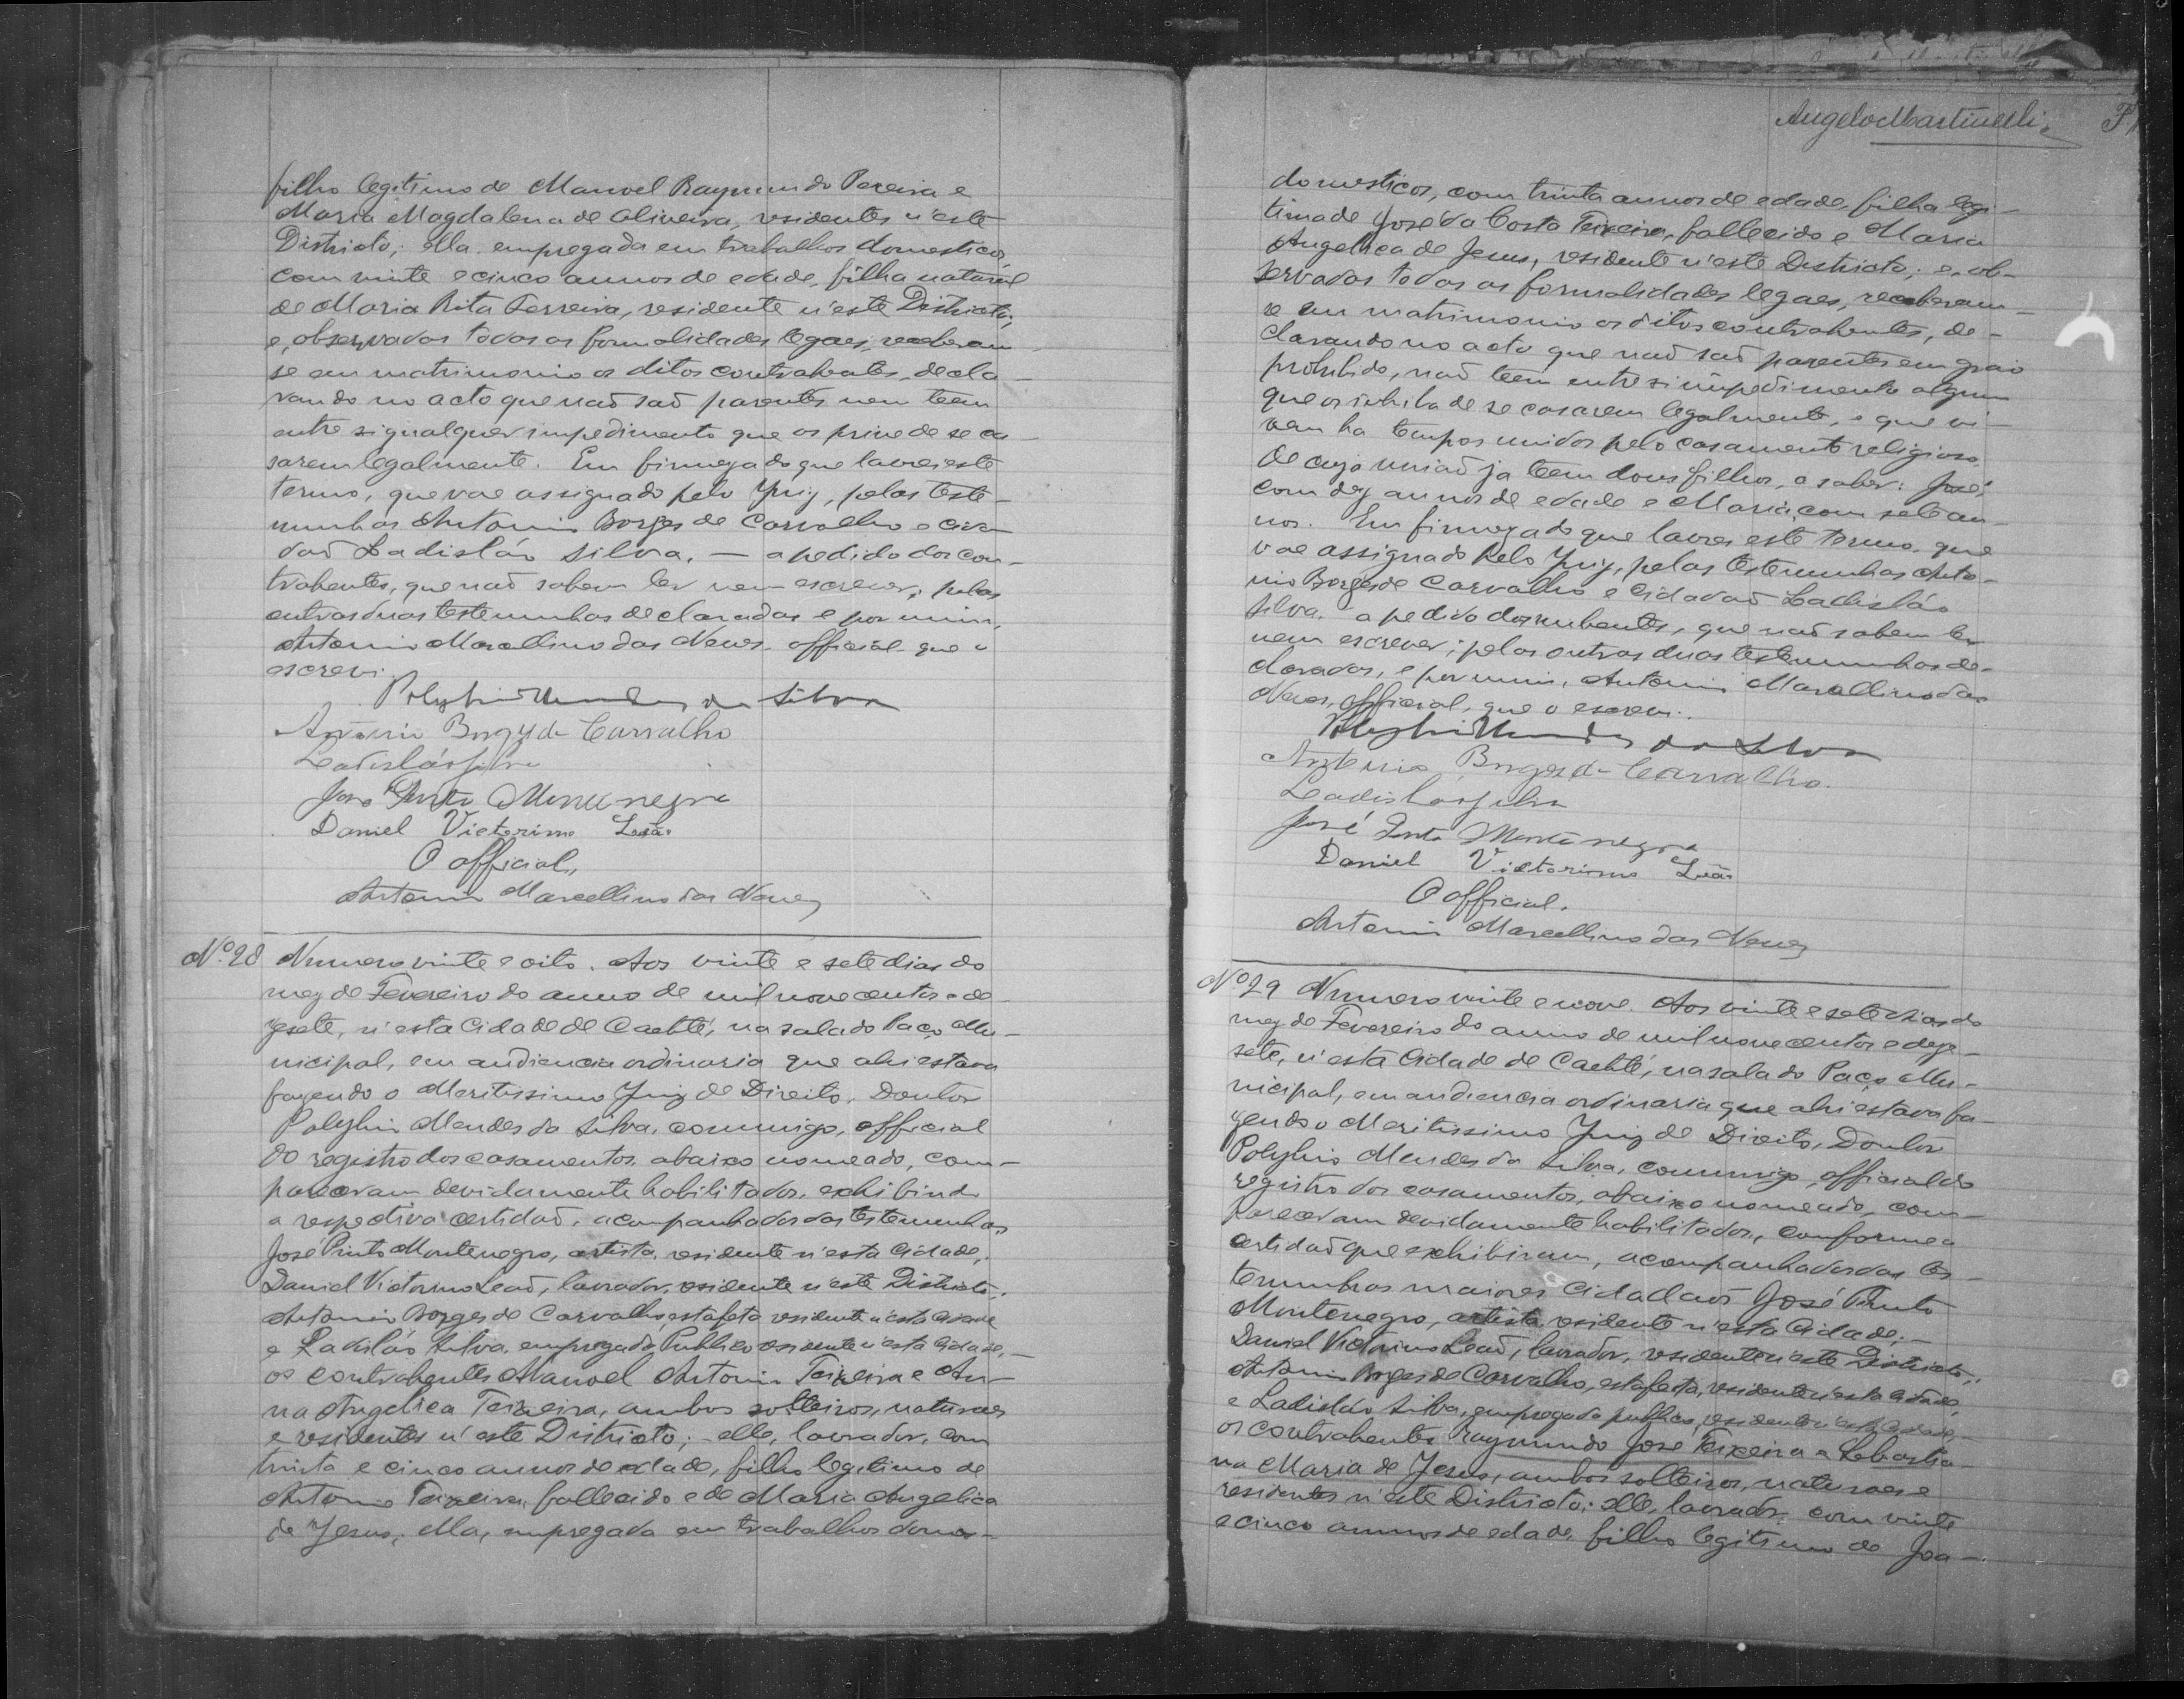 filho legitimo de Manoel Raymundo Pereira e
Maria Magdalena de Oliveira, residentes n'este
Districto; ella empregada em trabalhos domesticos,
com vinte e cinco annos de edade, filha natural
de Maria Rita Ferreira, residente n'este Districto;
e, observadas todas as formalidades legaes, receberam
se em matrimonio os ditos contrahentes, decla-
rando no acto que naõ saõ parentes nem teem
entre si qualquer impedimento que os prive de se ca-
sarem legalmente. Em firmeza do que lavrei este
termo, que vae assignado pelo Juiz, pelas teste-
munhas Antonio Borges de Carvalho e cida-
daõ Ladisláo Silva, — a pedido dos con-
trahentes, que naõ sabem ler nem escrever; pelas
outras duas testemunhas declaradas e por mim,
Antonio Marcellino das Neves, official que o
escrevi.
Polybio Mendes da Silva
Antonio Borges de Carvalho
Ladisláo Silva
José Pinto Montenegro
Daniel Victorino Leão
O official,
Antonio Marcellino das Neves
Nº 28 Numero vinte e oito. Aos vinte e sete dias do
mez de Fevereiro do anno de mil novecentos e de-
zesete, n'esta Cidade de Caethé, na sala do Paço Mu-
nicipal, em audiencia ordinaria que ahi estava
fazendo o Meritissimo Juiz de Direito, Doutor
Polybio Mendes da Silva, commigo, official
do registro dos casamentos, abaixo nomeado, com-
pareceram devidamente habilitados, exhibindo
a respectiva certidaõ, acompanhados das testemunhas
José Pinto Montenegro, artista, residente n'esta Cidade;
Daniel Victorino Leaõ, lavrador, residente n'este Districto;
Antonio Borges de Carvalho, estafeta residente n'esta Cidade
e Ladisláo Silva, empregado Publico residente n'esta Cidade, —
os contrahentes Manoel Antonio Teixeira e An-
na Angelica Teixeira, ambos solteiros, naturaes
e residentes n'este Districto; elle, lavrador, com
trinta e cinco annos de edade, filho legitimo de
Antonio Teixeira, fallecido e de Maria Angelica
de Jesus; ella, empregada em trabalhos domes-
Angelo Martinelli.
domesticos, com trinta annos de edade, filha legi-
tima de José da Costa Teixeira, fallecido e Maria
Angelica de Jesus, residente n'este Districto; e, ob-
servadas todas as formalidades legaes, receberam-
se em matrimonio os ditos contrahentes, de-
clarando no acto que naõ saõ parentes em gráo
prohibido, naõ teem entre si impedimento algum
que os inhiba de se casarem legalmente, e que vi-
vem ha tempos unidos pelo casamento religioso,
de cuja uniaõ ja teem dous filhos, a saber: José,
com dez annos de edade e Maria, com sete an-
nos. Em firmeza do que lavrei este termo, que
vae assignado pelo Juiz, pelas testemunhas Anto-
nio Borges de Carvalho e Cidadaõ Ladisláo
Silva, a pedido dos nubentes, que naõ sabem ler
nem escrever; pelas outras duas testemunhas de-
claradas, e por mim, Antonio Marcellino das
Neves, official, que o escrevi.
Polybio Mendes da Silva
Antonio Borges de Carvalho.
Ladisláo Silva
José Pinto Montenegro
Daniel Victorino Leão
O official.
Antonio Marcellino das Neves
Nº 29 Numero vinte e nove. Aos vinte e sete dias do
mez de Fevereiro do anno de mil novecentos e deze-
sete, n'esta Cidade de Caethé, na sala do Paço Mu-
nicipal, em audiencia ordinaria que ahi estava fa-
zendo o Meritissimo Juiz de Direito, Doutor
Polybio Mendes da Silva, commigo, official do
registro dos casamentos, abaixo nomeado, com-
pareceram devidamente habilitados, conforme a
certidaõ que exhibiram, acompanhados das tes-
temunhas maiores Cidadaõs José Pinto
Montenegro, artista, residente n'esta Cidade; —
Daniel Victorino Leaõ, lavrador, residente n'este Districto;
Antonio Borges de Carvalho, estafeta, residente n'esta Cidade,
e Ladisláo Silva, empregado publico, residente n'esta Cidade, —
os contrahentes Raymundo José Teixeira e Sebastia-
na Maria de Jesus, ambos solteiros, naturaes e
residentes n'este Districto; elle, lavrador, com vinte
e cinco annos de edade, filho legitimo de Joa-